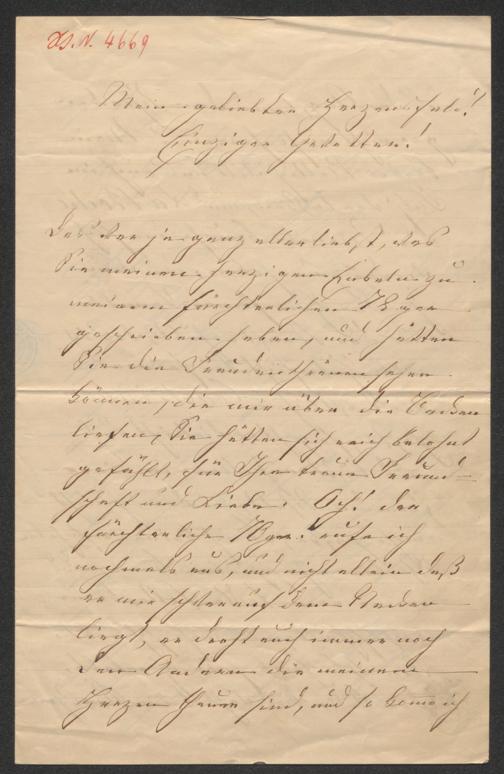 Ds. N. 4669
Mein geliebter Herzensfels!
Einziger Gevatter!
Das war ja ganz allerliebst, das
Sie meinen herzigen Enkeln zu
meinem fürchterlichen 70ger
geschrieben haben, und hätten
Sie die Freudenthränen sehen
können, die mir über die Backen
liefen, Sie hätten sich reich belohnt
gefühlt, für Ihre treue Freund-
schaft und Liebe. Ach! der
fürchterliche 70ger: rufe ich
nochmals aus, und nicht allein daß
er mir schwer auf dem Nacken
liegt, er droht auch immer noch
den Andern die meinem
Herzen theuer sind, und so komme ich